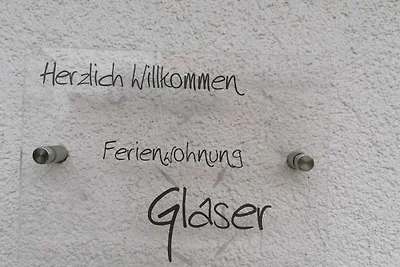 Herzlich Willkommen
Ferienwohnung
Glaser